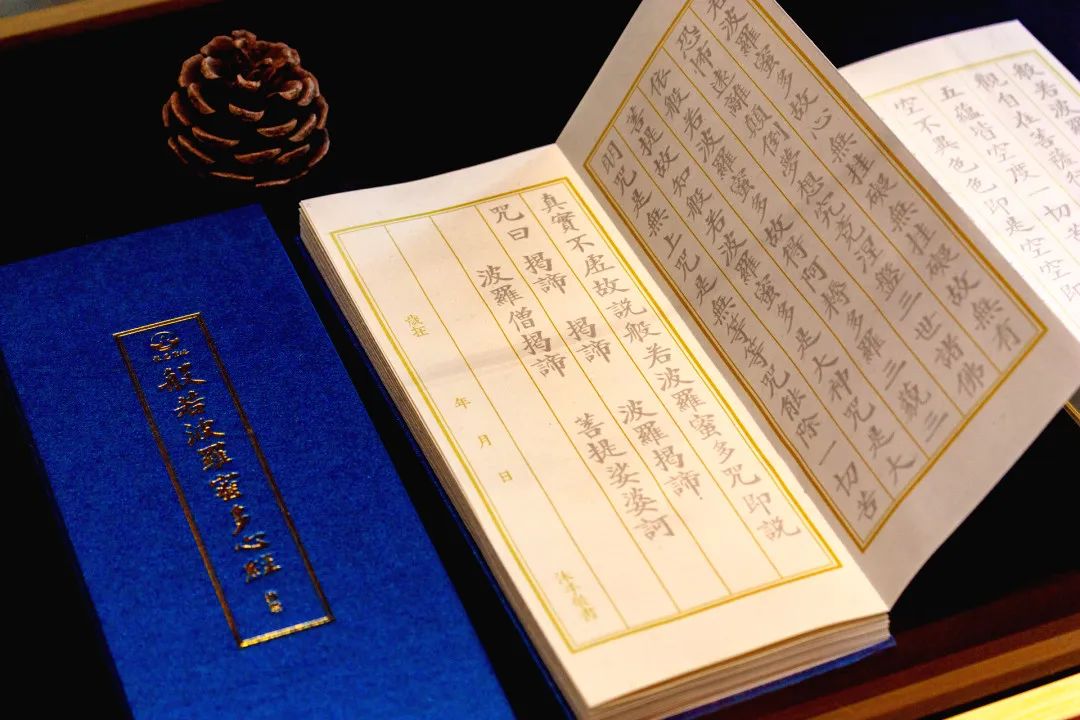 般若波羅蜜多心經
般若波羅
觀自在菩薩行
五蘊皆空度一切苦
空不異色色即是空空即
若波羅蜜多故心無挂礙無挂礙故無有
恐怖遠離顛倒夢想究竟涅盤三世諸佛
依般若波羅蜜多故得阿耨多羅三藐三
菩提故知般若波羅蜜多是大神咒是大
明咒是無上咒是無等等咒能除一切苦
真實不虛故說般若波羅蜜多咒即說
咒曰 揭諦 揭諦 波羅揭諦
波羅僧揭諦 菩提娑婆訶
歲在 年 月 日
沐手敬書